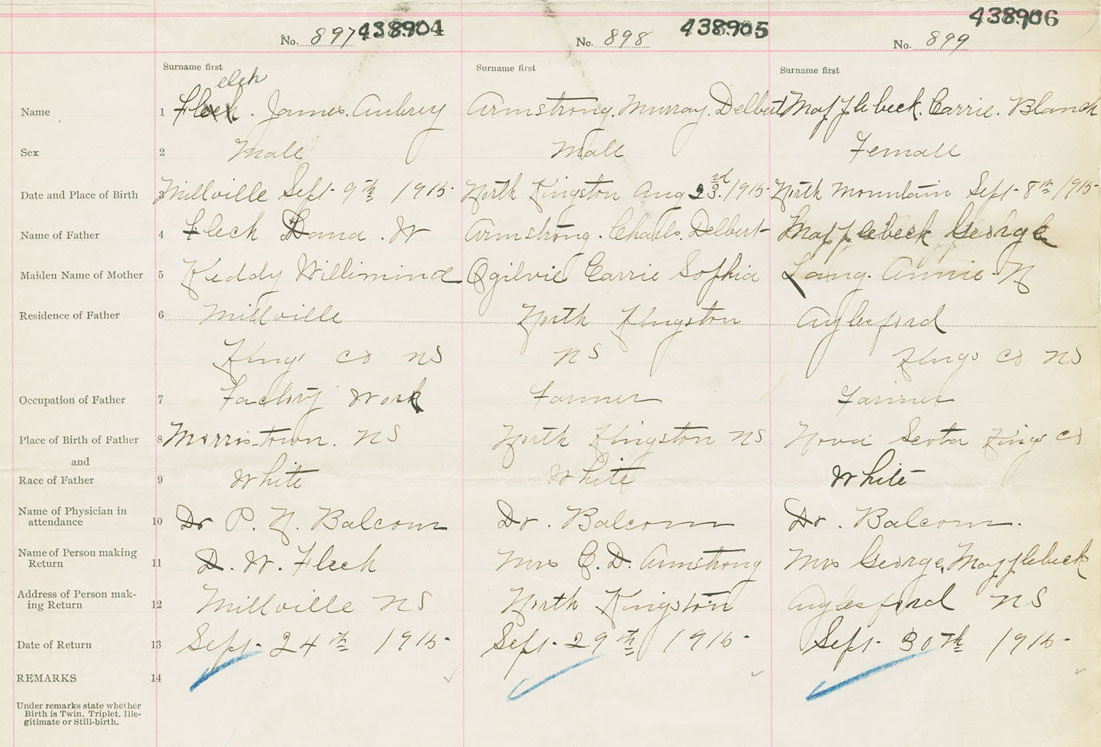 No. 897 438904 No. 898 438905 No. 899 438906
Surname first Surname first Surname first
elch
Name 1 Fleck. James. Aubrey Armstrong. Murray. Delbert Mapplebeck. Carrie. Blanch
Sex 2 Male Male Female
Date and Place of Birth 3 Millville Sept 9th 1915 North Kingston Aug 23rd 1915 North Mountain Sept 8th 1915
Name of Father 4 Fleck Dana. W Armstrong. Charles. Delbert Mapplebeck George
Maiden Name of Mother 5 Keddy Willimina Ogilvie Carrie Sophia Lang. Annie. N
Residence of Father 6 Millville North Kingston Aylesford
Kings Co NS NS Kings Co NS
Occupation of Father 7 Factory Work Farmer Farmer
Place of Birth of Father 8 Morristown. NS North Kingston NS Nova Scotia Kings Co
and
Race of Father 9 White White White
Name of Physician in
attendance 10 Dr P. N. Balcom Dr. Balcom Dr. Balcom.
Name of Person making
Return 11 D. W. Fleck Mrs C. D. Armstrong Mrs George. Mapplebeck
Address of Person mak-
ing Return 12 Millville NS North Kingston Aylesford NS
Date of Return 13 Sept. 24th 1915 Sept. 29th 1915 Sept. 30th 1915
REMARKS 14
Under remarks state whether
Birth is Twin, Triplet, Ille-
gitimate or Still-birth.